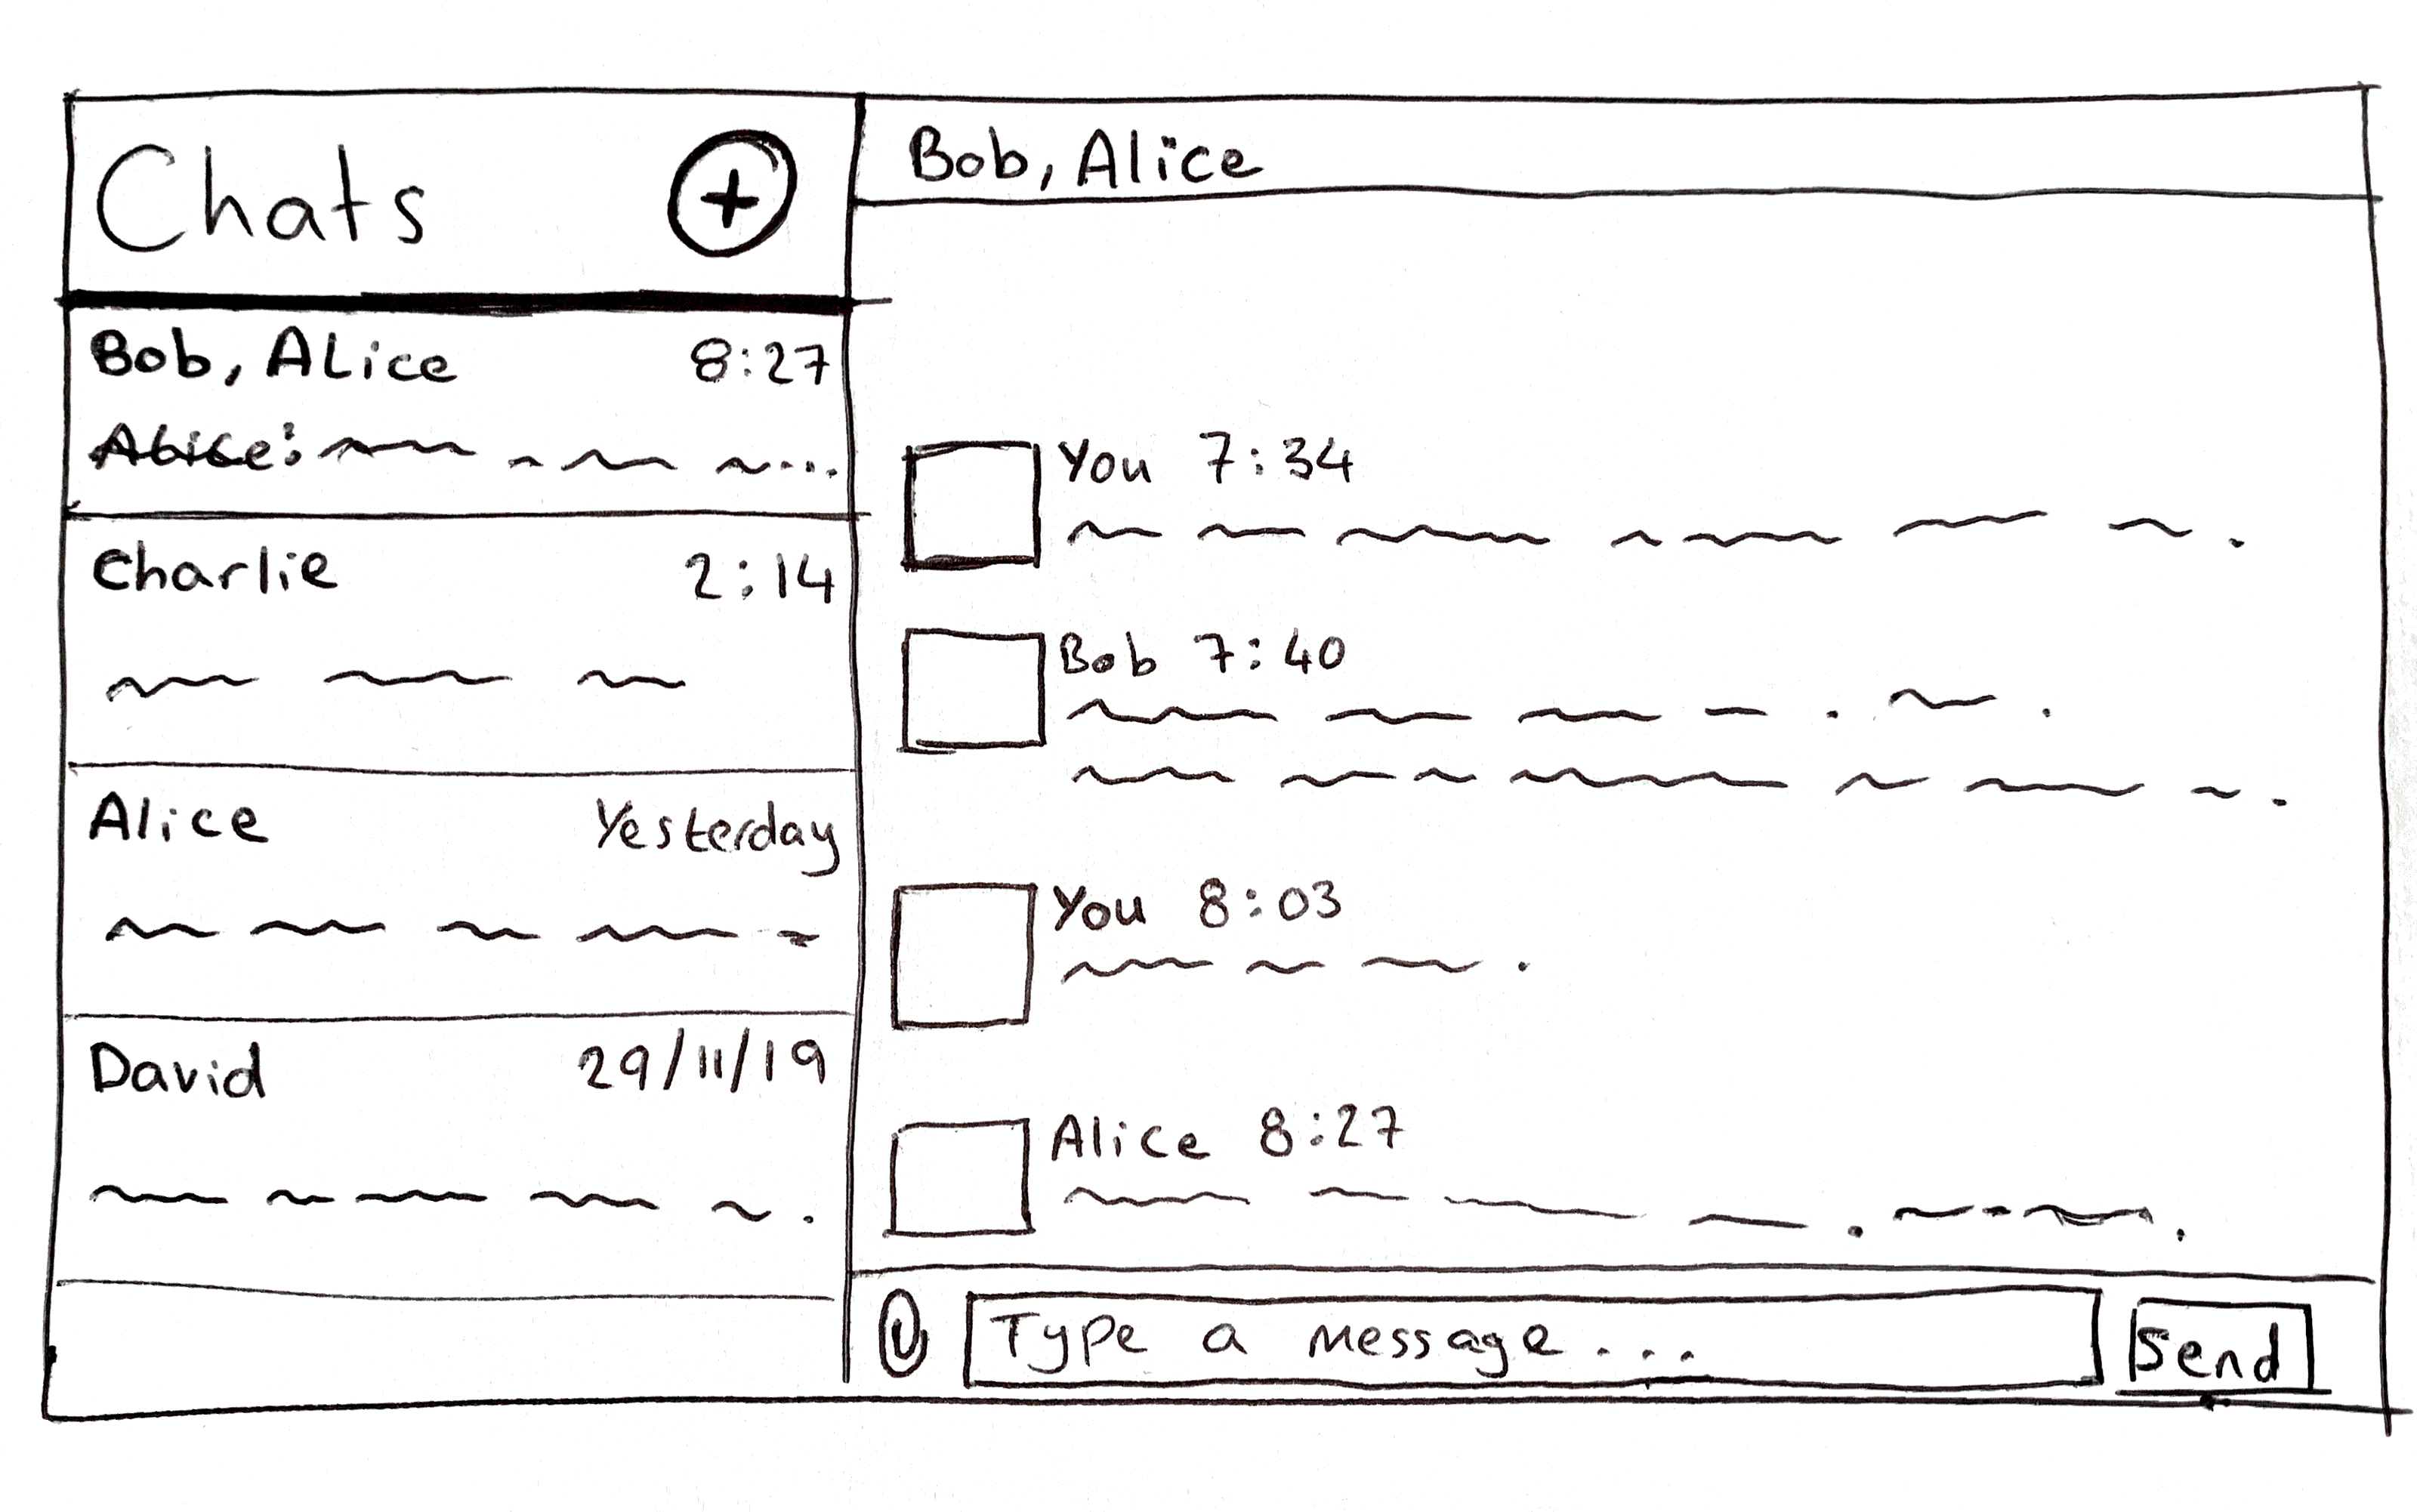 Chats +
Bob, Alice 8:27
Alice: ...
Charlie 2:14
Alice Yesterday
David 29/11/19
Bob, Alice
You 7:34
Bob 7:40
You 8:03
Alice 8:27
Type a message...
Send